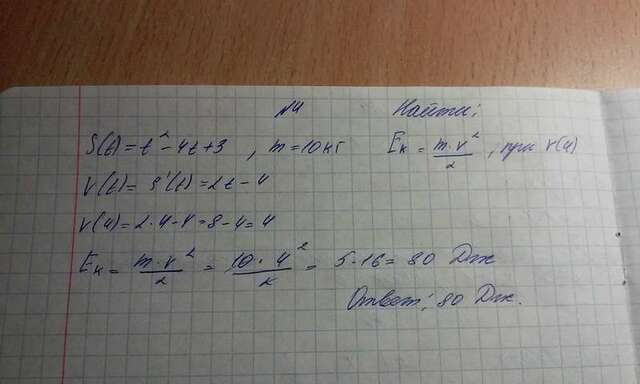 №4 Найти:
S(t)=t²-4t+3, m=10кг Eк = m·v²/2, при v(4)
V(t)=S'(t)=2t-4
v(4)=2·4-4=8-4=4
Eк = m·v²/2 = 10·4²/2 = 5·16=80 Дж
Ответ: 80 Дж.